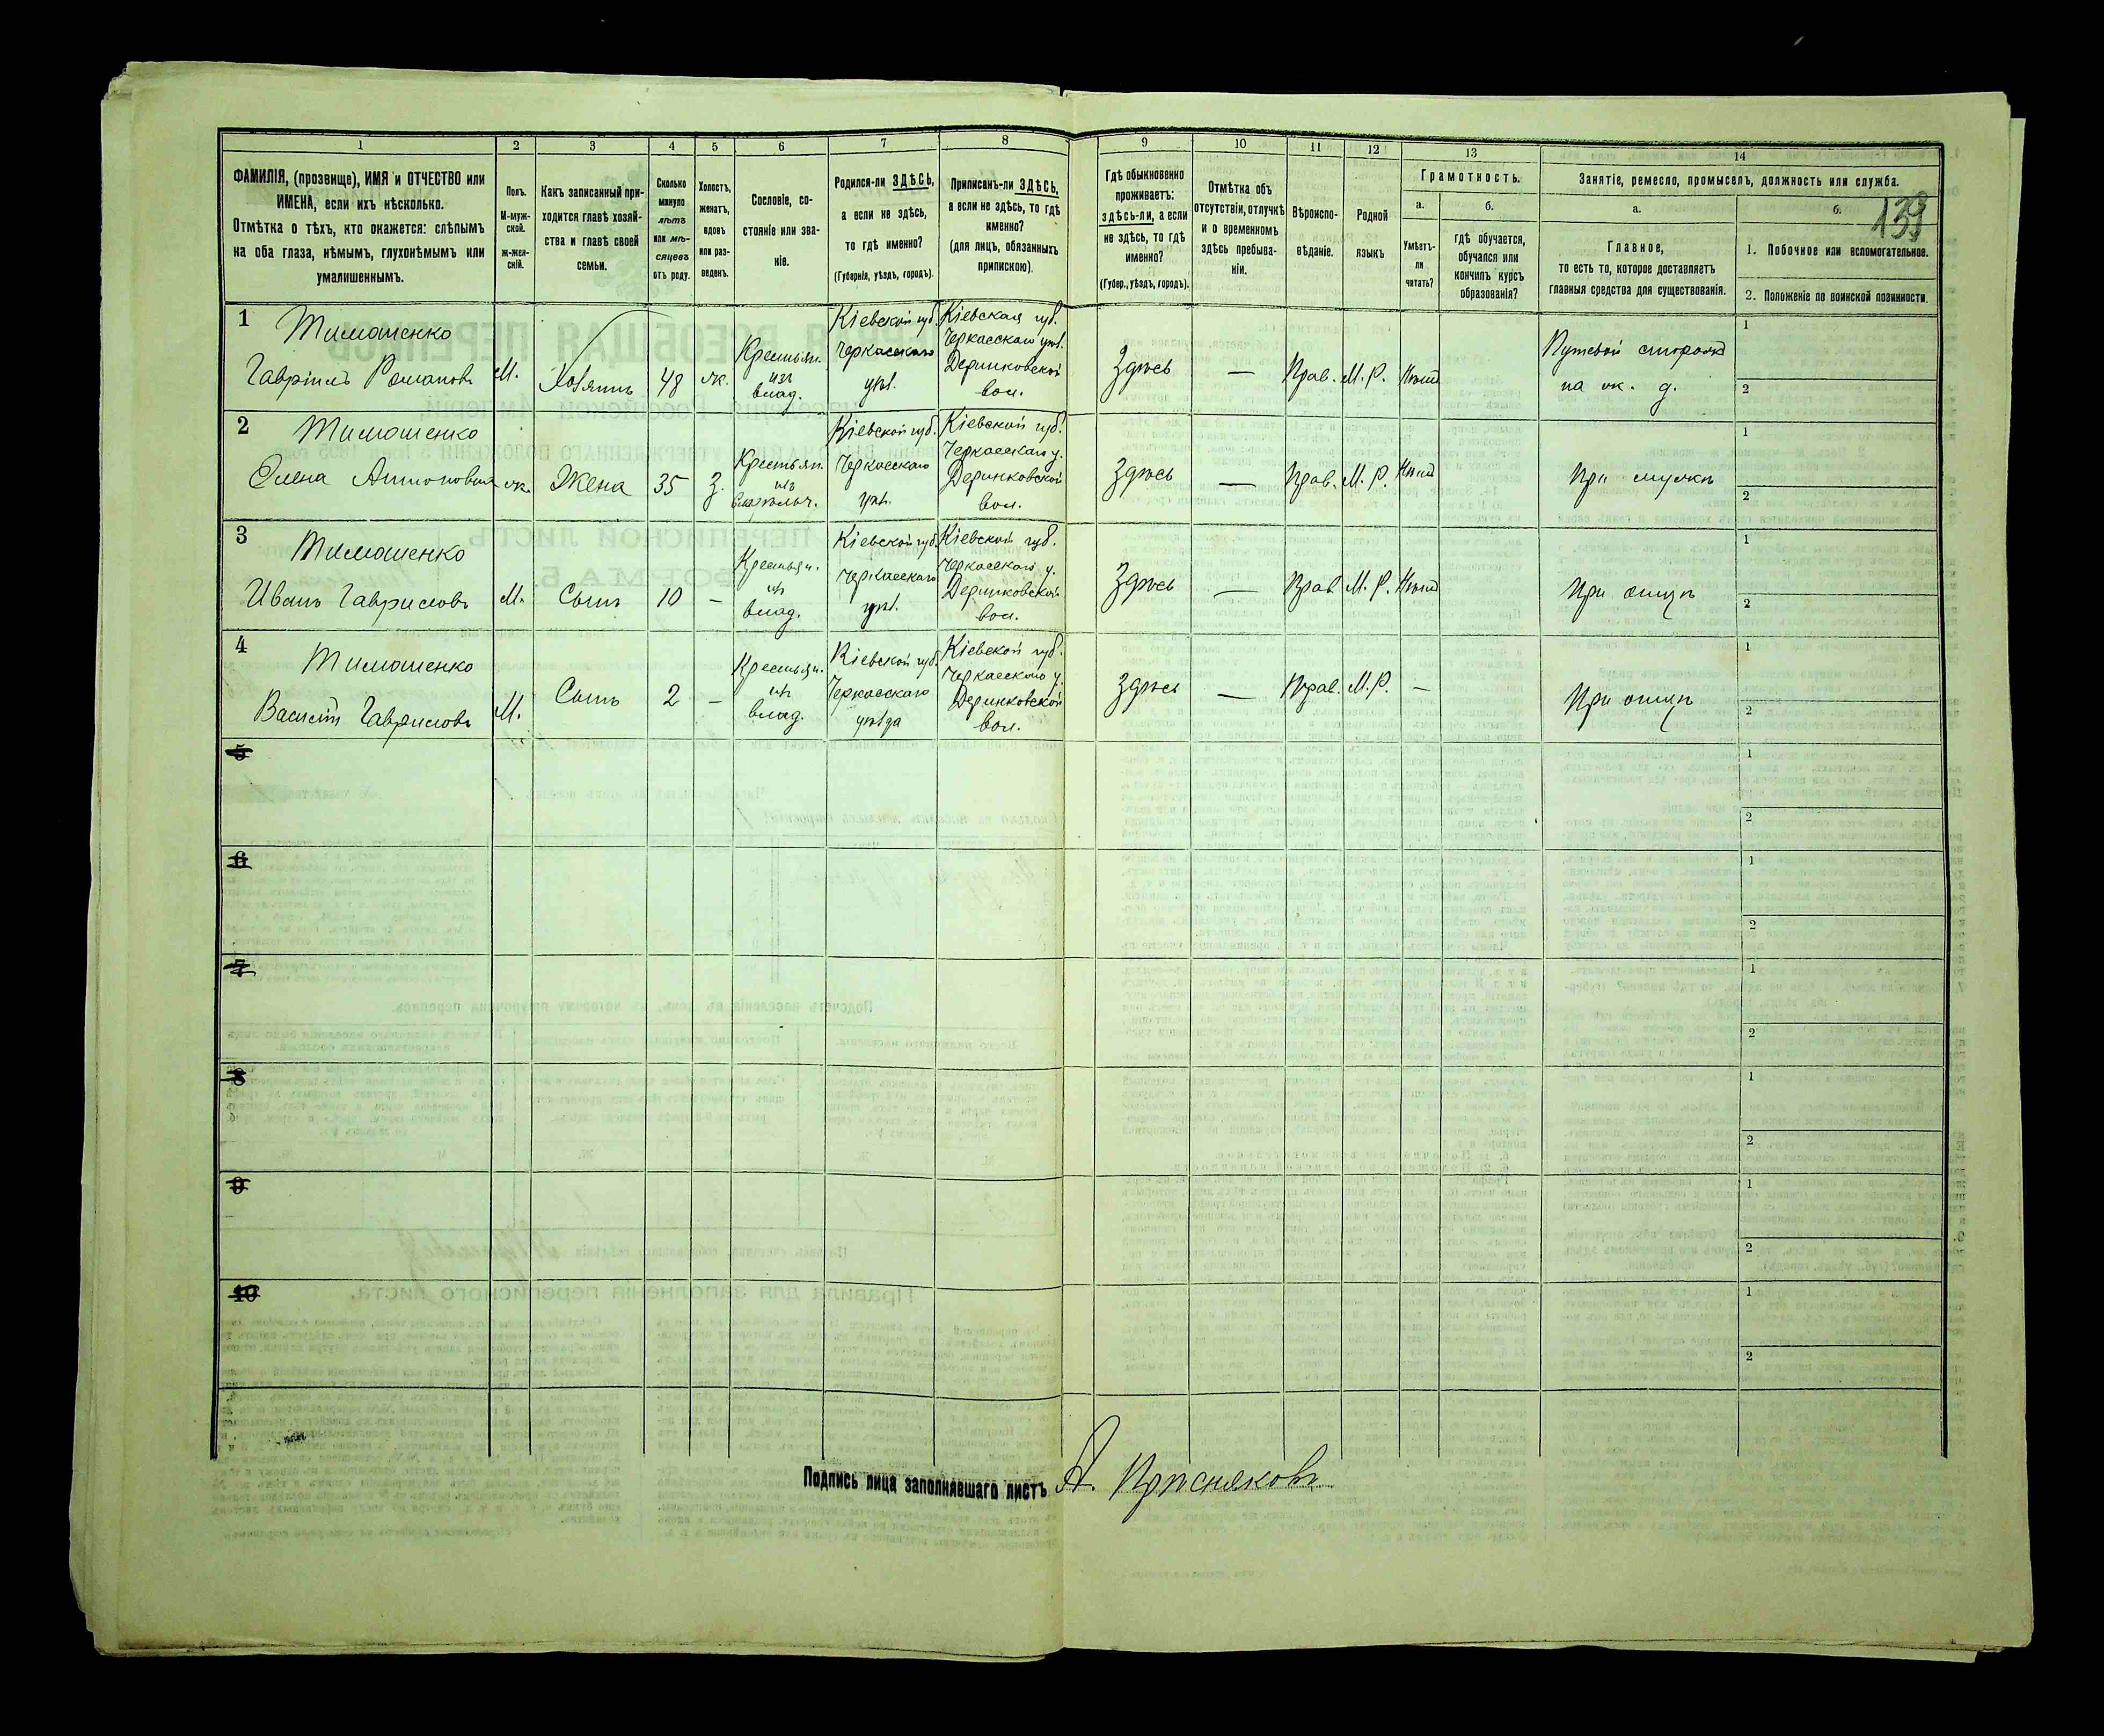 1 2 3 4 5 6 7 8 9 10 11 12 13 14
ФАМИЛІЯ, (прозвище), ИМЯ и ОТЧЕСТВО или
ИМЕНА, если ихъ нѣсколько.
Отмѣтка о тѣхъ, кто окажется: слѣпымъ
на оба глаза, нѣмымъ, глухонѣмымъ или
умалишеннымъ.
Полъ.
М-муж-
ской.
Ж-жен-
скій.
Какъ записанный при-
ходится главѣ хозяй-
ства и главѣ своей
семьи.
Сколько
минуло
лѣтъ
или мѣ-
сяцевъ
отъ роду.
Холостъ,
женатъ,
вдовъ
или раз-
веденъ.
Сословіе, со-
стояніе или зва-
ніе.
Родился-ли ЗДѢСЬ,
а если не здѣсь,
то гдѣ именно?
(Губернія, уѣздъ, городъ).
Приписанъ-ли ЗДѢСЬ,
а если не здѣсь, то гдѣ
именно?
(для лицъ, обязанныхъ
припискою).
Гдѣ обыкновенно
проживаетъ:
здѣсь-ли, а если
не здѣсь, то гдѣ
именно?
(Губер., уѣздъ, городъ).
Отмѣтка объ
отсутствіи, отлучкѣ
и о временномъ
здѣсь пребыва-
ніи.
Вѣроиспо-
вѣданіе.
Родной
языкъ
Грамотность.
а.
Умѣетъ-
ли
читать?
б.
гдѣ обучается,
обучался или
кончилъ курсъ
образованія?
Занятіе, ремесло, промыселъ, должность или служба.
а.
Главное,
то есть то, которое доставляетъ
главныя средства для существованія.
б.
139
1. Побочное или вспомогательное.
2. Положеніе по воинской повинности.
1
Тимошенко
Гавріилъ Романовъ
М.
Хозяинъ
48
ж.
Крестьян.
изъ
влад.
Кіевской губ.
Черкасскаго
уѣз.
Кіевская губ.
Черкасскаго уѣз.
Деринковской
вол.
Здѣсь
—
Прав.
М. Р.
Путевой сторожъ
на ж. д.
1
2
2
Тимошенко
Елена Антоновна
ж.
Жена
35
З.
Крестьян.
изъ
Кіевской губ.
Черкасскаго
уѣз.
Кіевской губ.
Черкасскаго у.
Деринковской
вол.
Здѣсь
—
Прав.
М. Р.
При мужѣ
1
2
3
Тимошенко
Иванъ Гавриловъ
М.
Сынъ
10
—
Крестьян.
изъ
влад.
Кіевской губ.
Черкасскаго
уѣз.
Кіевской губ.
Черкасскаго у.
Деринковской
вол.
Здѣсь
—
Прав.
М. Р.
При отцѣ
1
2
4
Тимошенко
Василій Гавриловъ
М.
Сынъ
2
—
Крестьян.
изъ
влад.
Кіевской губ.
Черкасскаго
уѣзда
Кіевской губ.
Черкасскаго у.
Деринковской
вол.
Здѣсь
—
Прав.
М. Р.
—
При отцѣ
1
2
5
1
2
6
1
2
7
1
2
8
1
2
9
1
2
10
1
2
Подпись лица заполнявшаго листъ А. Прясняковъ